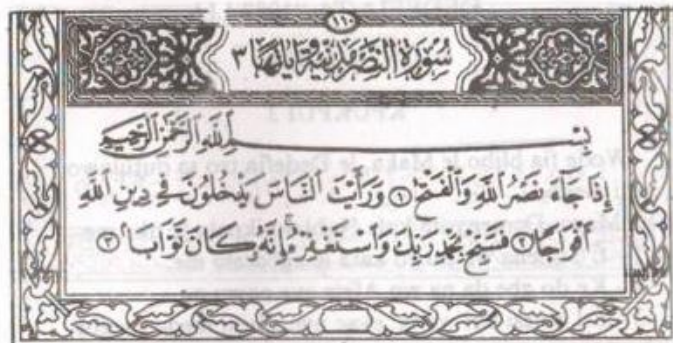 ١١٠
سُورَةُ النَّصْرِ مَدَنِيَّة وَآيَاتُهَا ٣
بِسْمِ اللَّهِ الرَّحْمَٰنِ الرَّحِيمِ
إِذَا جَآءَ نَصْرُ اللَّهِ وَالْفَتْحُ ١ وَرَأَيْتَ النَّاسَ يَدْخُلُونَ فِي دِينِ اللَّهِ
أَفْوَاجًا ٢ فَسَبِّحْ بِحَمْدِ رَبِّكَ وَاسْتَغْفِرْهُ ۚ إِنَّهُ كَانَ تَوَّابًا ٣